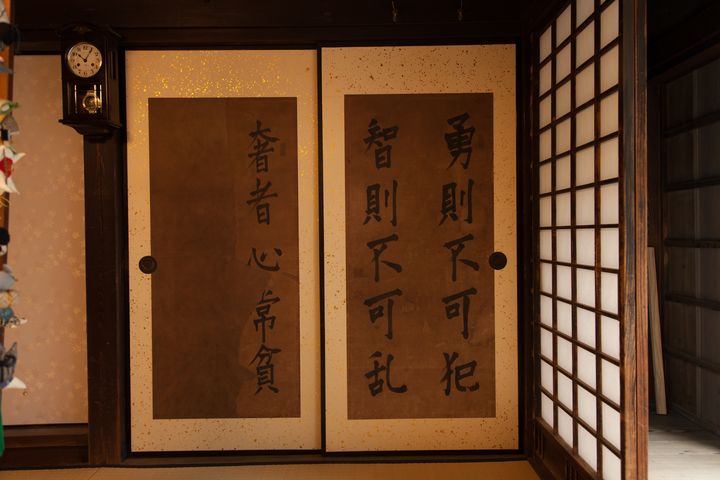 勇則不可犯
智則不可乱
奢者心常貧